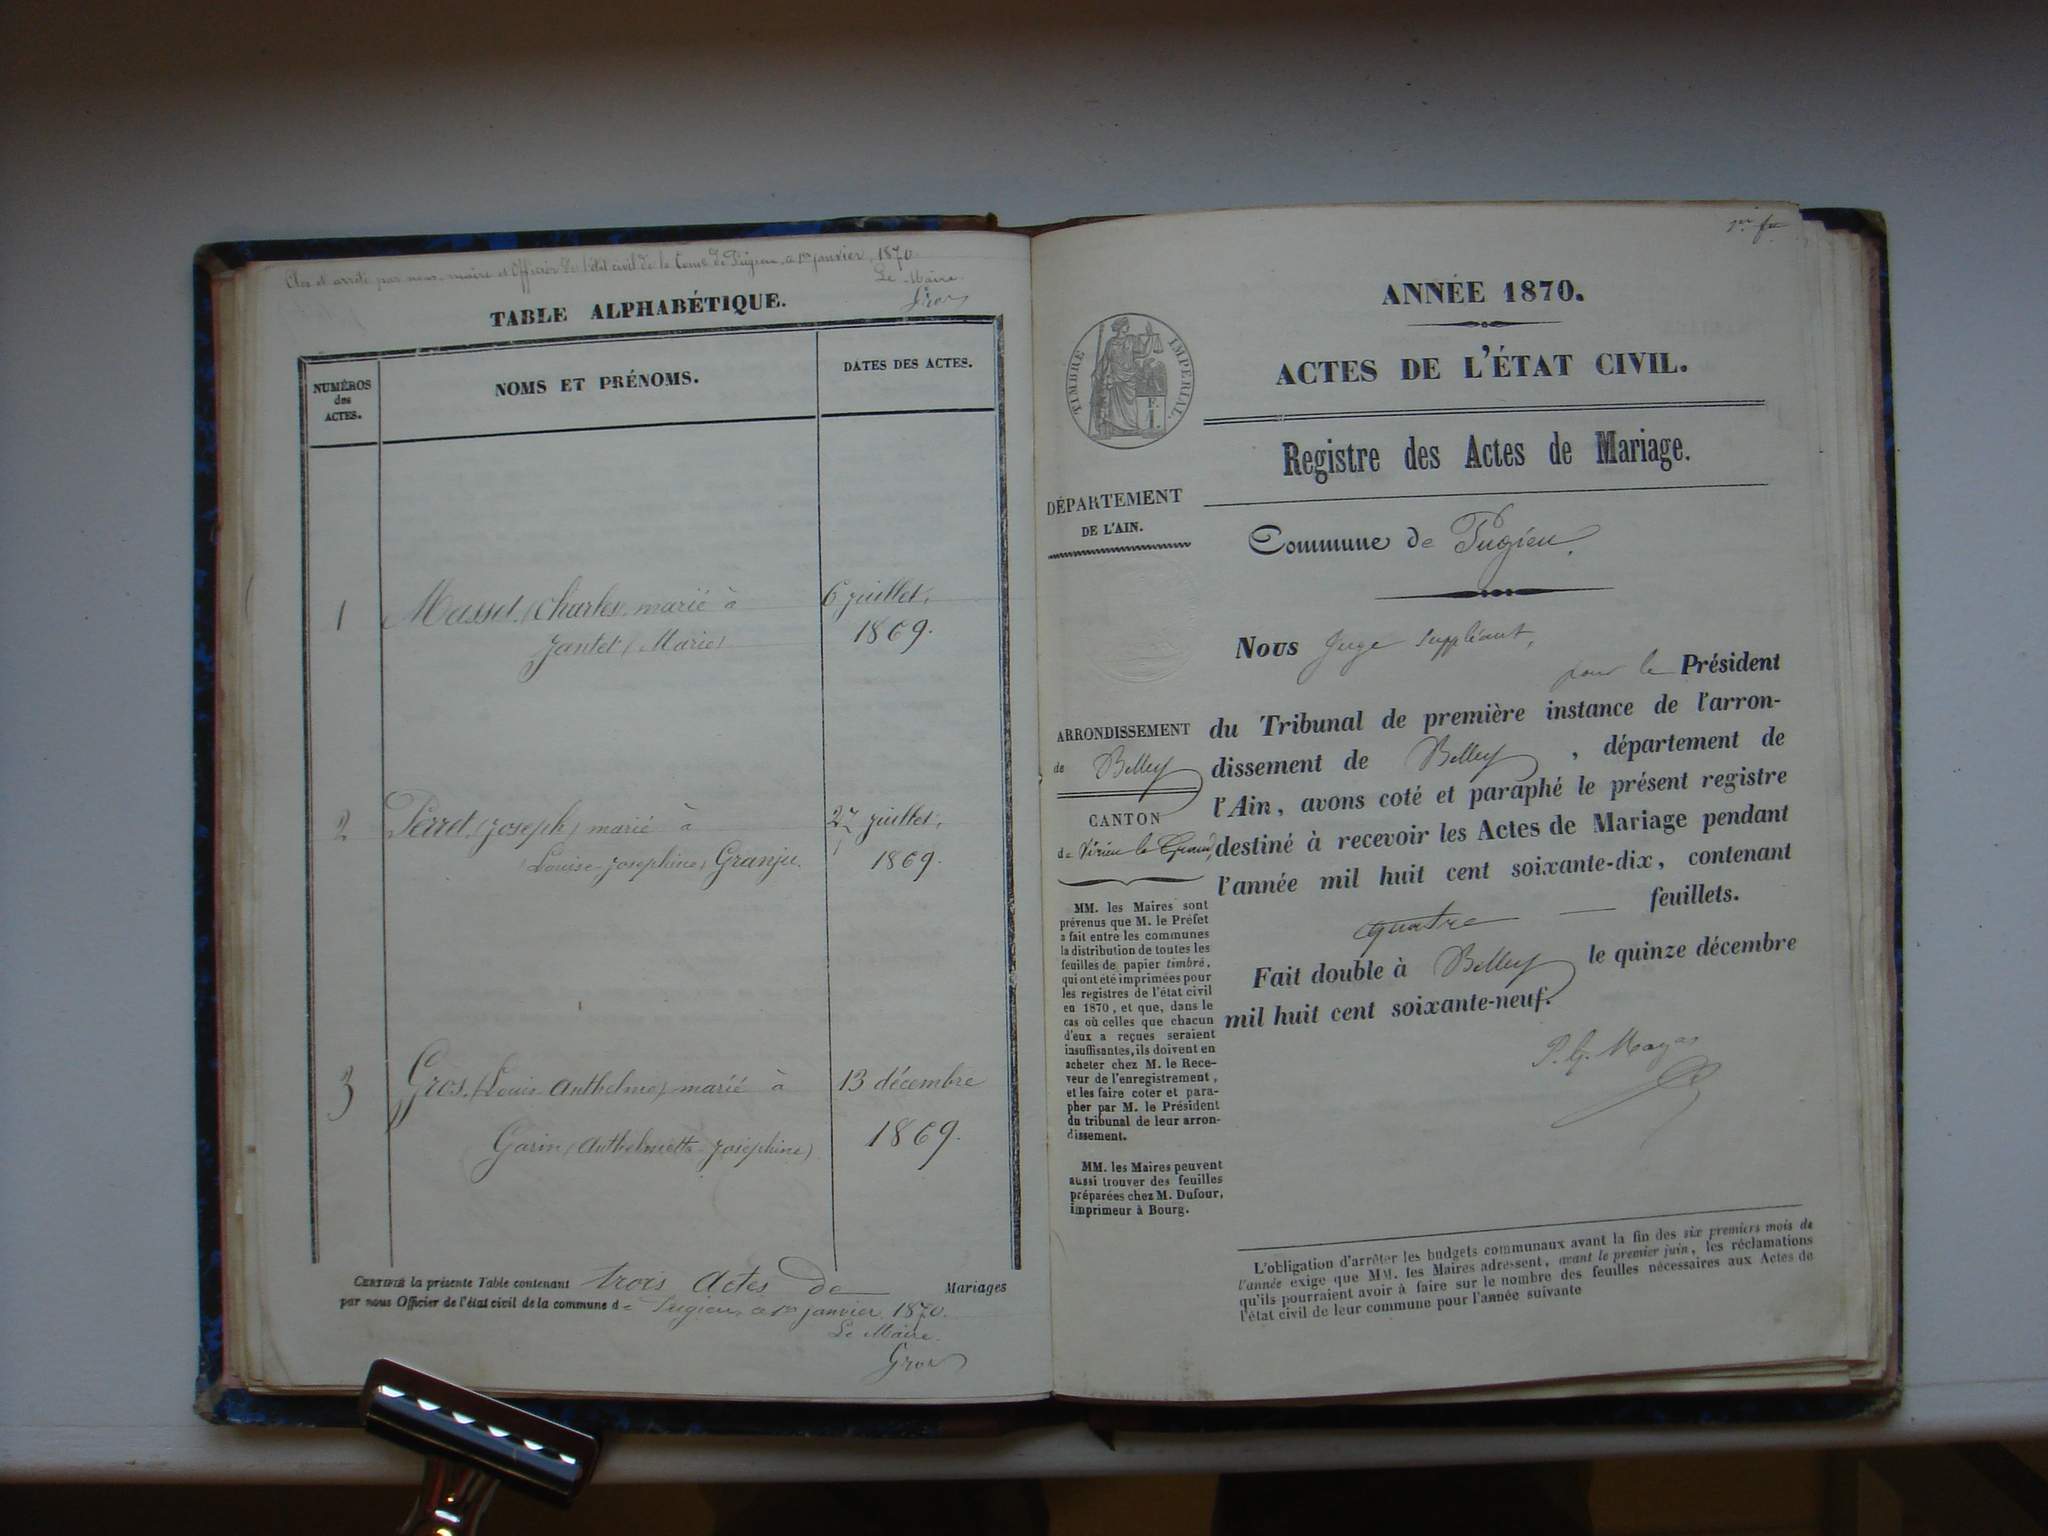 Clos et arrêté par nous, maire et Officier de l'état civil de la Comᵉ de Pugieu, ce 1er janvier 1870.
Le Maire.
Gros
TABLE ALPHABÉTIQUE.
NUMÉROS
des
ACTES.
NOMS ET PRÉNOMS.
DATES DES ACTES.
1 Masset (Charles) marié à 6 juillet,
Jantet (Marie) 1869.
2 Perret (Joseph) marié à 27 juillet,
(Louise-Josephine) Granju. 1869.
3 Gros. (Louis Anthelme) marié à 13 décembre
Garin (Anthelmette Josephine) 1869.
CERTIFIÉ la présente Table contenant trois Actes de Mariages
par nous Officier de l'état civil de la commune de Pugieu, ce 1er janvier 1870.
Le Maire.
Gros
ANNÉE 1870.
ACTES DE L'ÉTAT CIVIL.
TIMBRE IMPÉRIAL.
F.
1.
Registre des Actes de Mariage.
DÉPARTEMENT
DE L'AIN.
Commune de Pugieu.
Nous Juge suppléant,
pour le Président
du Tribunal de première instance de l'arron-
dissement de Belley, département de
l'Ain, avons coté et paraphé le présent registre
destiné à recevoir les Actes de Mariage pendant
l'année mil huit cent soixante-dix, contenant
quatre feuillets.
Fait double à Belley le quinze décembre
mil huit cent soixante-neuf.
ARRONDISSEMENT
de Belley
CANTON
de Virieu le Grand,
MM. les Maires sont
prévenus que M. le Préfet
a fait entre les communes
la distribution de toutes les
feuilles de papier timbré,
qui ont été imprimées pour
les registres de l'état civil
en 1870, et que, dans le
cas où celles que chacun
d'eux a reçues seraient
insuffisantes, ils doivent en
acheter chez M. le Rece-
veur de l'enregistrement,
et les faire coter et para-
pher par M. le Président
du tribunal de leur arron-
dissement.
MM. les Maires peuvent
aussi trouver des feuilles
préparées chez M. Dufour,
imprimeur à Bourg.
L'obligation d'arrêter les budgets communaux avant la fin des six premiers mois de
l'année exige que MM. les Maires adressent, avant le premier juin, les réclamations
qu'ils pourraient avoir à faire sur le nombre des feuilles nécessaires aux Actes de
l'état civil de leur commune pour l'année suivante